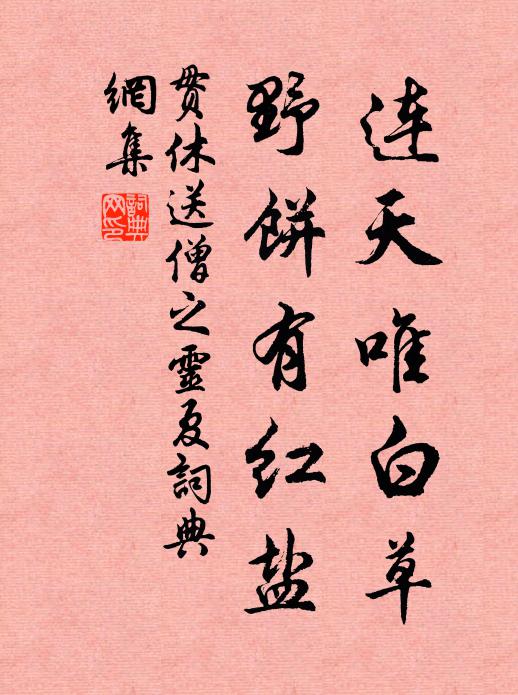 連天唯白草
野餅有紅鹽
貫休送僧之靈夏詞典
網集
詞典
网印